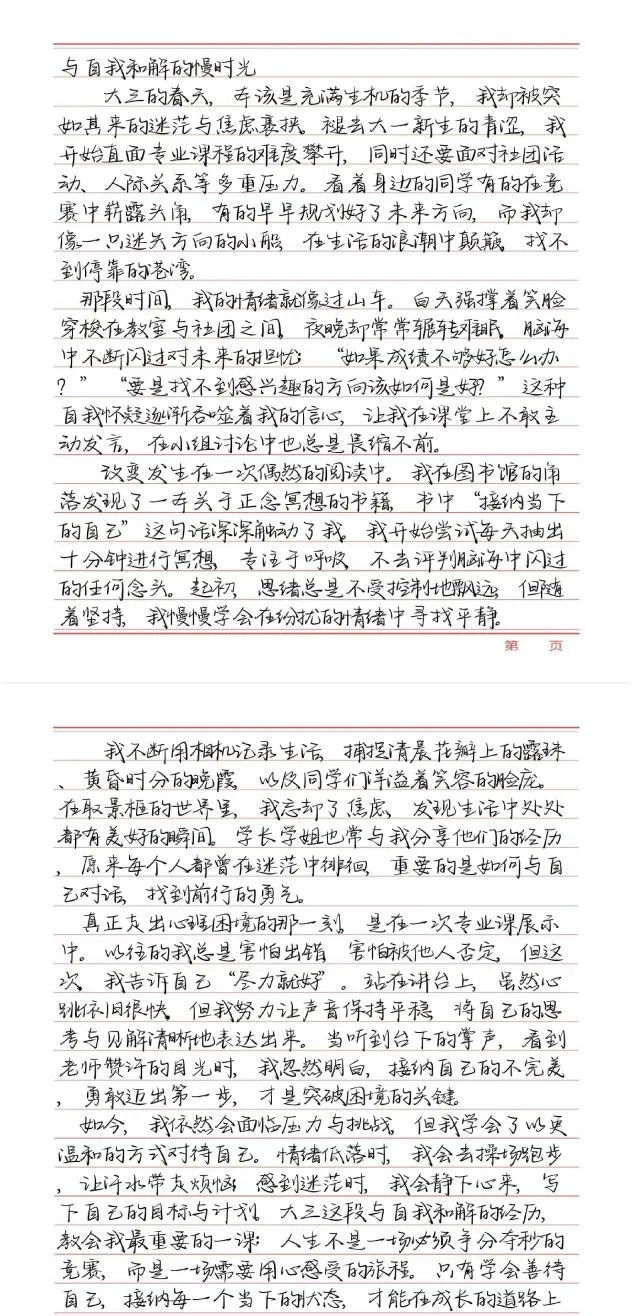 与自我和解的慢时光
大三的春天，本该是充满生机的季节，我却被突
如其来的迷茫与焦虑裹挟。褪去大一新生的青涩，我
开始直面专业课程的难度攀升，同时还要面对社团活
动、人际关系等多重压力。看着身边的同学有的在竞
赛中崭露头角，有的早早规划好了未来方向，而我却
像一只迷失方向的小船，在生活的浪潮中颠簸，找不
到停靠的港湾。
那段时间，我的情绪就像过山车。白天强撑着笑脸
穿梭在教室与社团之间，夜晚却常常辗转难眠，脑海
中不断闪过对未来的担忧：“如果成绩不够好怎么办
？”“要是找不到感兴趣的方向该如何是好？”这种
自我怀疑逐渐吞噬着我的信心，让我在课堂上不敢主
动发言，在小组讨论中也总是畏缩不前。
改变发生在一次偶然的阅读中。我在图书馆的角
落发现了一本关于正念冥想的书籍，书中“接纳当下
的自己”这句话深深触动了我。我开始尝试每天抽出
十分钟进行冥想，专注于呼吸，不去评判脑海中闪过
的任何念头。起初，思绪总是不受控制地飘远，但随
着坚持，我慢慢学会在纷扰的情绪中寻找平静。
第 页
我不断用相机记录生活，捕捉清晨花瓣上的露珠
、黄昏时分的晚霞，以及同学们洋溢着笑容的脸庞。
在取景框的世界里，我忘却了焦虑，发现生活中处处
都有美好的瞬间。学长学姐也常与我分享他们的经历
，原来每个人都曾在迷茫中徘徊，重要的是如何与自
己对话，找到前行的勇气。
真正走出心理困境的那一刻，是在一次专业课展示
中。以往的我总是害怕出错，害怕被他人否定，但这
次，我告诉自己“尽力就好”。站在讲台上，虽然心
跳依旧很快，但我努力让声音保持平稳，将自己的思
考与见解清晰地表达出来。当听到台下的掌声，看到
老师赞许的目光时，我忽然明白，接纳自己的不完美
，勇敢迈出第一步，才是突破困境的关键。
如今，我依然会面临压力与挑战，但我学会了以更
温和的方式对待自己。情绪低落时，我会去操场跑步
，让汗水带走烦恼；感到迷茫时，我会静下心来，写
下自己的目标与计划。大三这段与自我和解的经历，
教会我最重要的一课：人生不是一场必须争分夺秒的
竞赛，而是一场需要用心感受的旅程。只有学会善待
自己，接纳每一个当下的状态，才能在成长的道路上